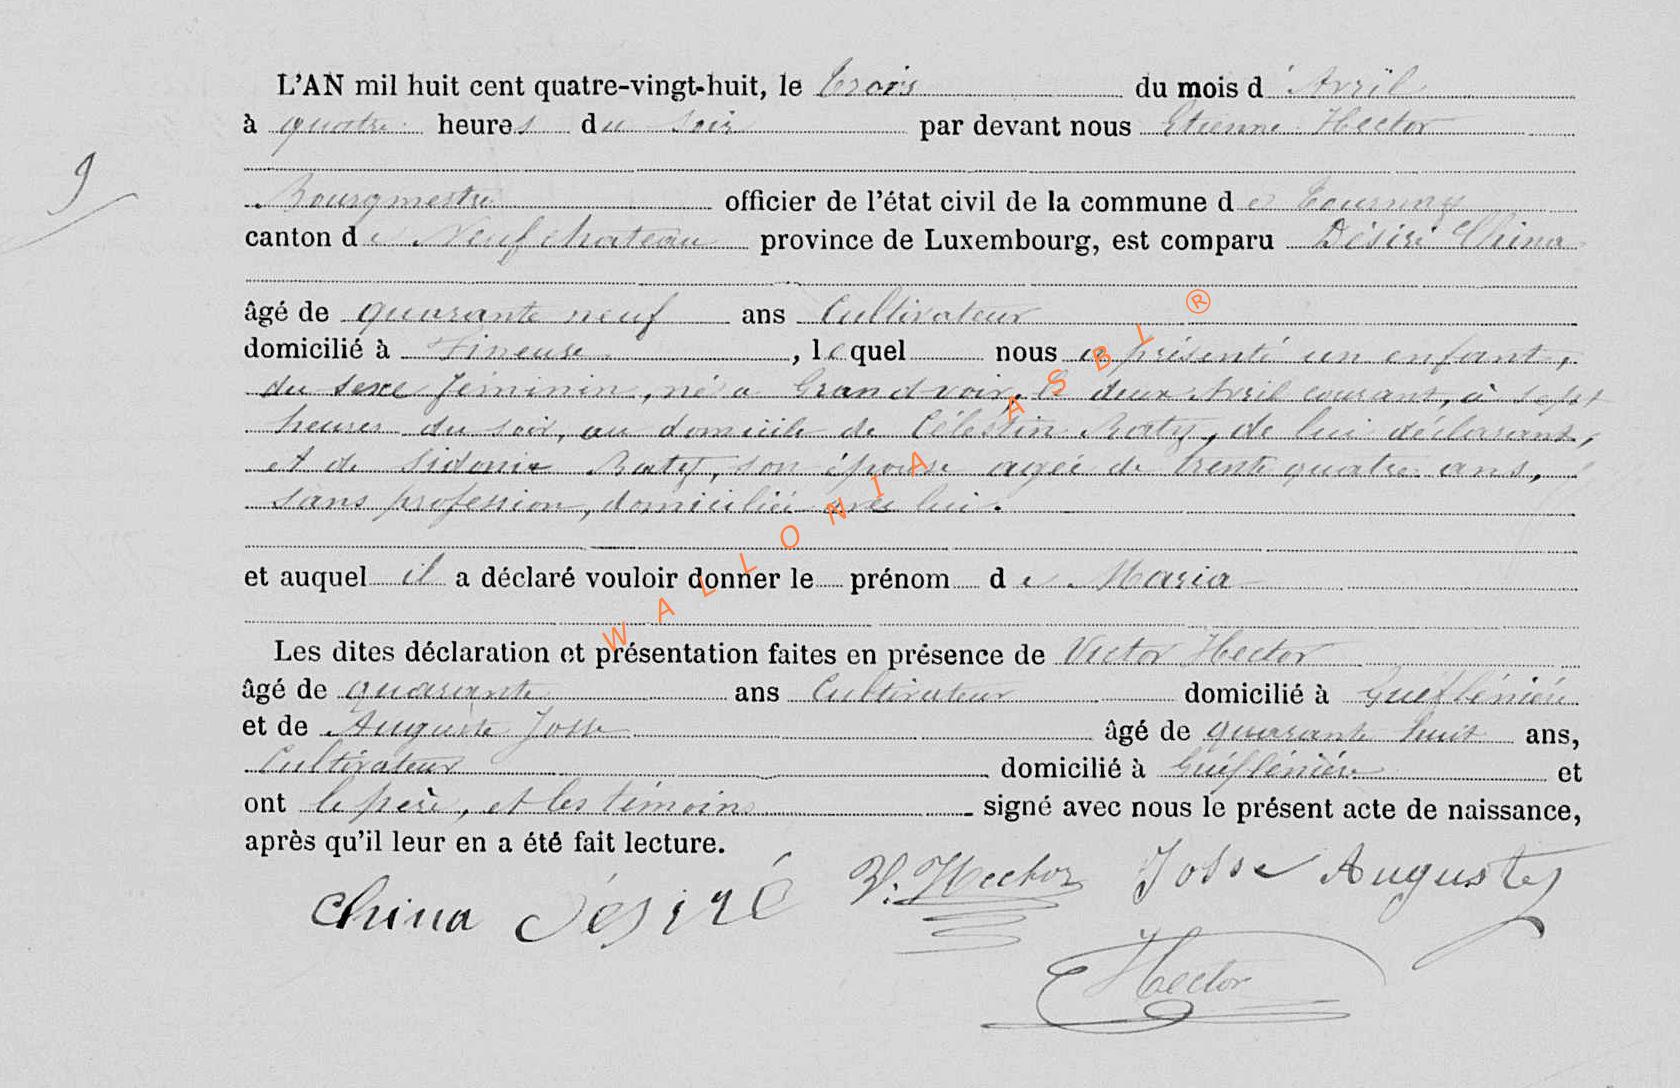 L'AN mil huit cent quatre-vingt-huit, le trois du mois d' Avril
à quatre heures du soir par devant nous Etienne Hector
9
Bourgmestre officier de l'état civil de la commune de Tournay
canton de Neufchateau province de Luxembourg, est comparu Désiré China
âgé de quarante neuf ans Cultivateur
domicilié à Fineuse, lequel nous a présenté un enfant,
du sexe féminin, né a Grandvoir, le deux Avril courant, à sept
heures du soir, au domicile de Célestin Raty, de lui déclarant,
et de Sidonie Raty, son épouse agée de trente quatre ans,
sans profession, domiciliée avec lui.
et auquel il a déclaré vouloir donner le prénom de Maria
Les dites déclaration et présentation faites en présence de Victor Hector
âgé de quarante ans Cultivateur domicilié à
et de Auguste Josse âgé de quarante huit ans,
Cultivateur domicilié à et
ont le père, et les témoins signé avec nous le présent acte de naissance,
après qu'il leur en a été fait lecture.
China Désiré V. Hector Josse Auguste
Hector
WALLONIA ASBL ®